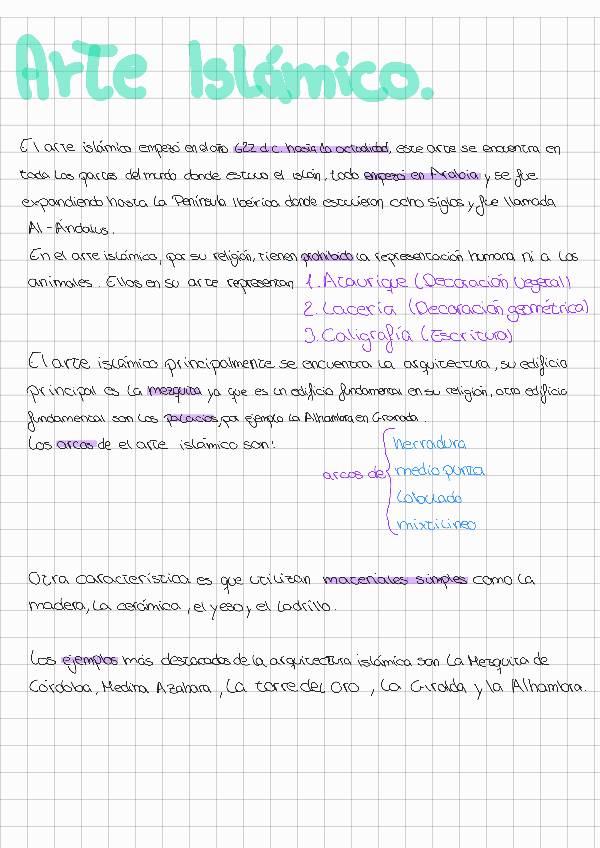 Arte Islámico.
El arte islámico empezó en el año 622 d.c. hasta la actualidad, este arte se encuentra en
toda las partes del mundo donde estuvo el islán, todo empezó en Arabia y se fue
expandiendo hasta la Península Ibérica donde estuvieron ocho siglos y fue llamada
Al-Ándalus.
En el arte islámico, por su religión, tienen prohibido la representación humana ni a los
animales. Ellos en su arte representan 1. Ataurique (Decoración vegetal)
2. Lacería (Decoración geométrica)
3. Caligrafía (Escritura)
El arte islámico principalmente se encuentra la arquitectura, su edificio
principal es la mezquita ya que es un edificio fundamental en su religión, otro edificio
fundamental son los palacios, por ejemplo la Alhambra en Granada.
Los arcos de el arte islámico son:
herradura
arcos de medio punta
lobulado
mixtilineo
Otra característica es que utilizan materiales simples como la
madera, la cerámica, el yeso y el ladrillo.
Los ejemplos más destacados de la arquitectura islámica son La Mezquita de
Córdoba, Medina Azahara, La torre del Oro, La Giralda y la Alhambra.